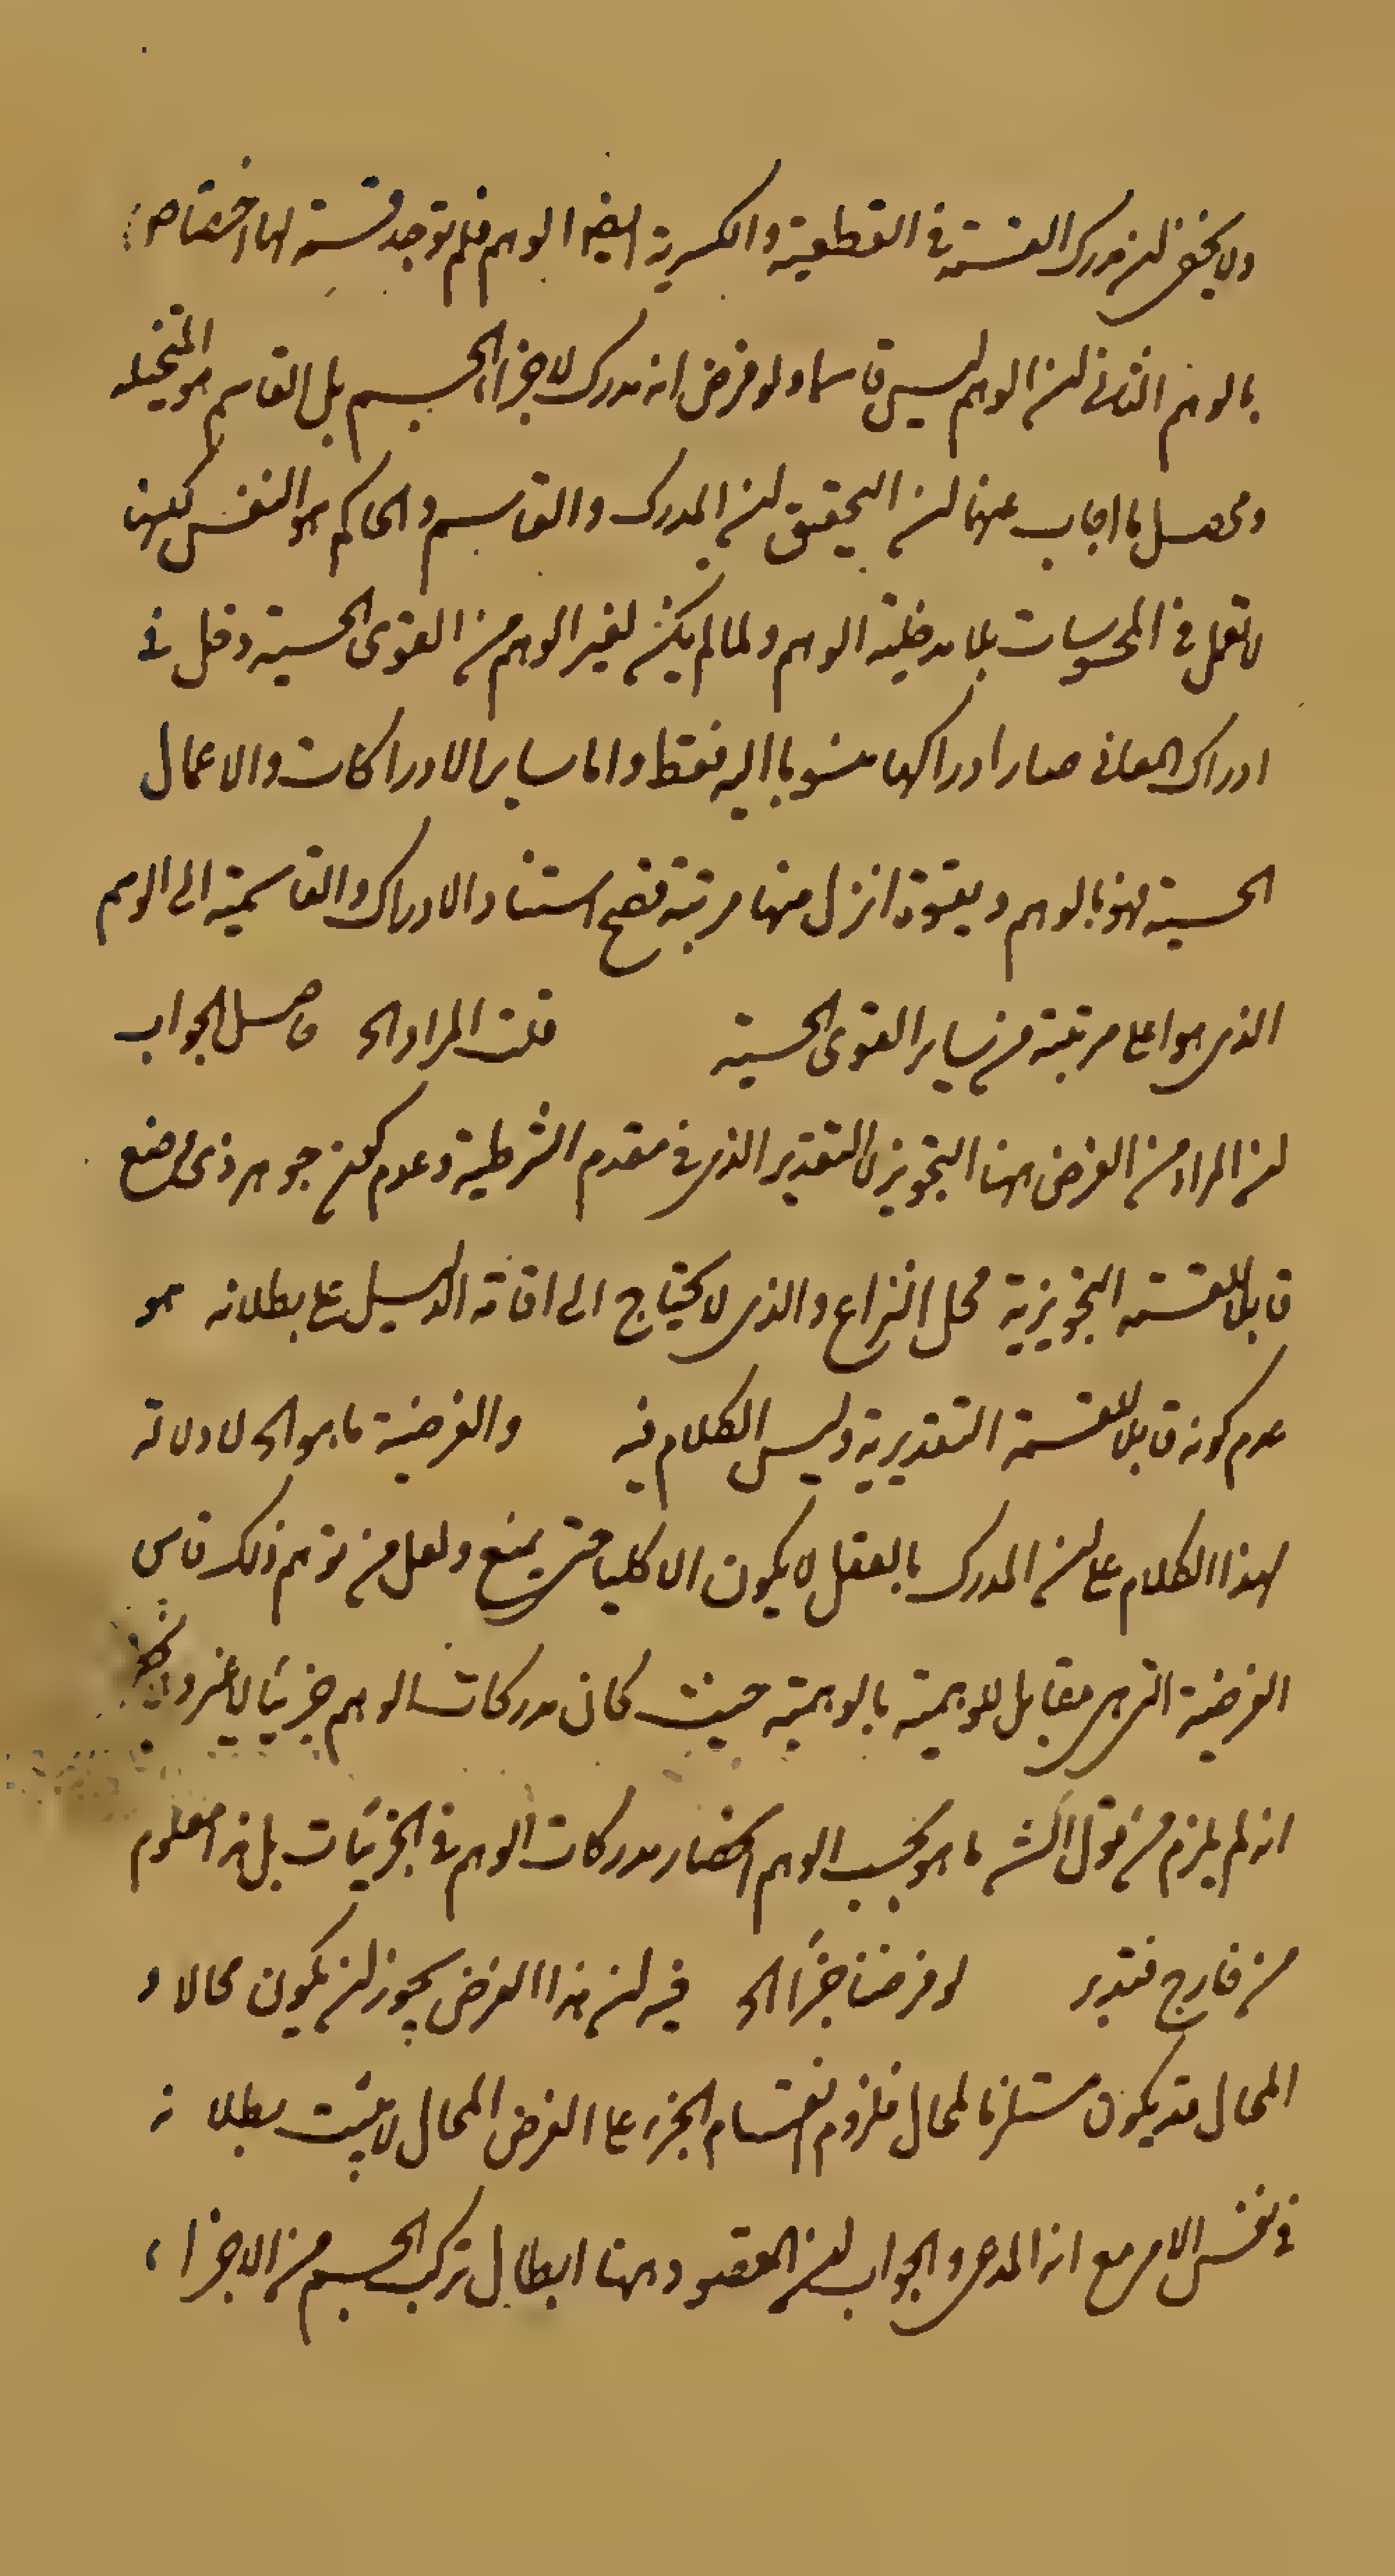 ولا يخفى ان مدرك القسمة في القطعية والكسرية ايضا الوهم فلم توجد قسمة لها اختصاص
بالوهم الثاني ان الوهم ليس قاسما ولو فرض انه مدرك لاجزاء الجسم بل القاسم هو المتخيلة
ومحصل ما اجاب عنها ان التحقيق ان المدرك والقاسم والحاكم هو النفس لكنها
لا تعمل في المحسوسات بلا مدخلية الوهم ولما لم يكن لغير الوهم من القوى الحسية دخل في
ادراك المعاني صار ادراكها منسوبا اليه فقط واما ساير الادراكات والاعمال
الحسية فهو بالوهم وبقوة انزل منها مرتبة فصح استناد الادراك والقاسمية الى الوهم
الذي هو اعلى مرتبة من ساير القوى الحسية قلت المراد الخ حاصل الجواب
ان المراد من الفرض ههنا التجويز لا التقدير الذي في مقدم الشرطية وعدم كون جوهر ذي وضع
قابلا للقسمة التجويزية محل النزاع والذي لا يحتاج الى اقامة الدليل على بطلانه هو
عدم كونه قابلا للقسمة التقديرية وليس الكلام فيه والفرضية ما هو الخ لا دلالة
لهذا الكلام على ان المدرك بالعقل لا يكون الا كليا حتى يمنع ولعل من توهم ذلك قاس
الفرضية التي هي مقابل للوهمية بالوهمية حيث كان مدركات الوهم جزئيا لا غير
انه لم يلزم من قول الش ما هو بحسب الوهم انحصار مدركات الوهم في الجزئيات بل هذا معلوم
من خارج فتدبر لو فرضنا جزءا الخ فيه ان هذا الفرض يجوز ان يكون محالا و
المحال قد يكون مستلزما لمحال فلزوم انقسام الجزء على الفرض المحال لا يثبت بطلانه
في نفس الامر مع انه المدعى والجواب ان المقصود ههنا ابطال تركب الجسم من الاجزاء